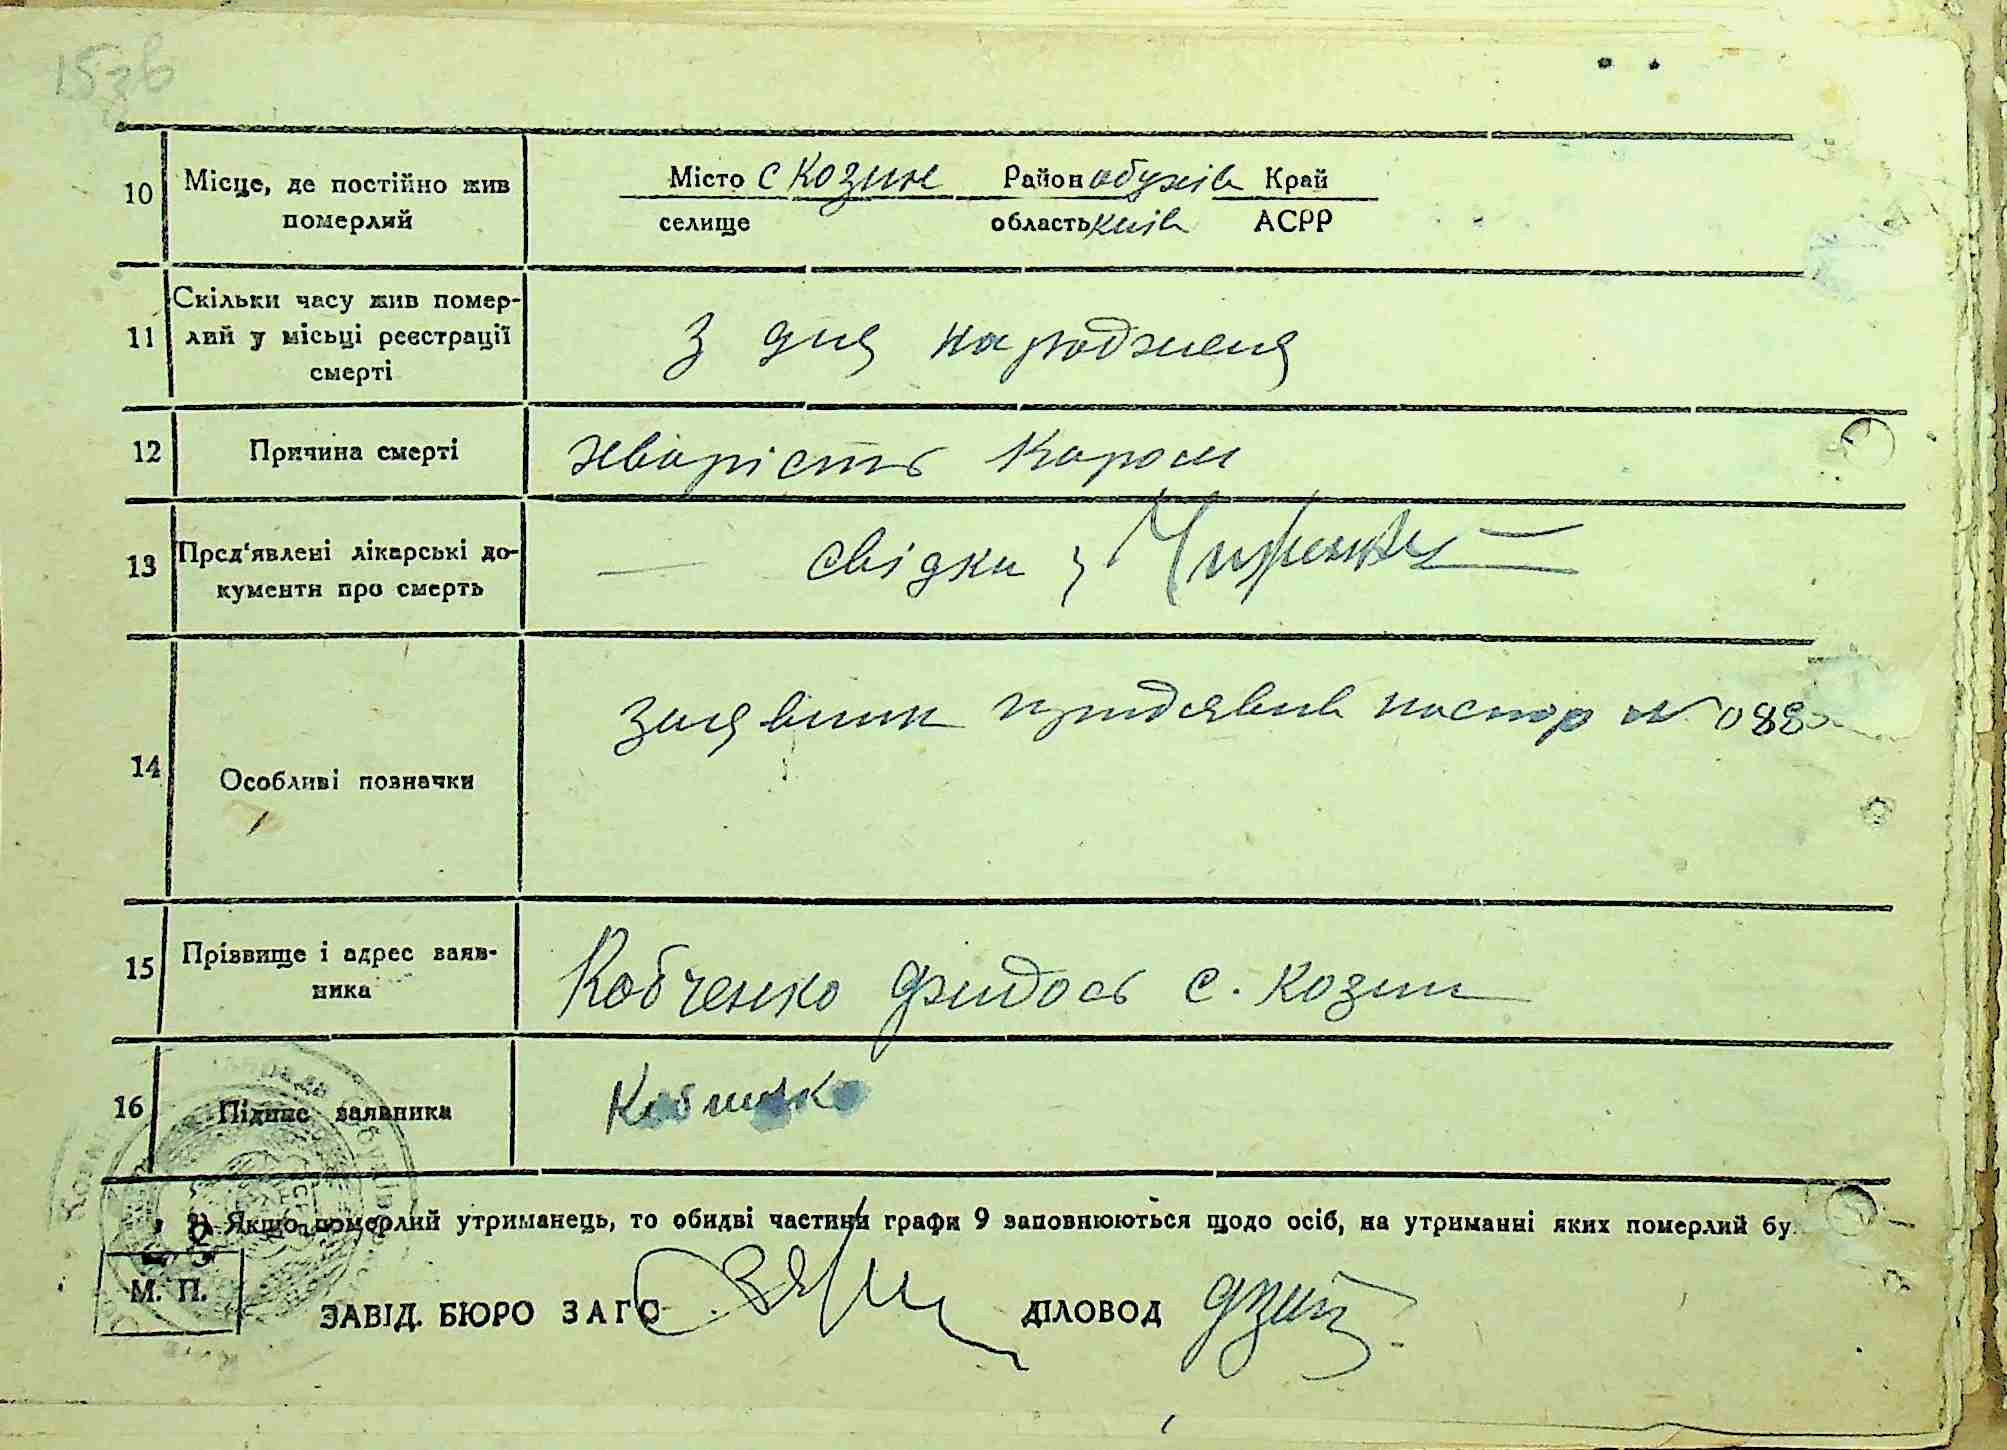 157
10 Місце, де постійно жив померлий
Місто с Козин Район обухів Край
селище область київ АСРР
11 Скільки часу жив помер-
лий у місьці реєстрації
смерті
З дня народженя
12 Причина смерті
хворість Кором
13 Пред'явлені лікарські до-
кументи про смерть
— свідки
14 Особливі позначки
заявник придявив паспор № 088
15 Прізвище і адрес заяв-
ника
Кобченко Фидось с. Козин
16 Підпис заявника
Кобченко
*) Якщо померлий утриманець, то обидві частини графи 9 заповнюються щодо осіб, на утриманні яких померлий бу
М. П.
ЗАВІД. БЮРО ЗАГС ДІЛОВОД Дзюб